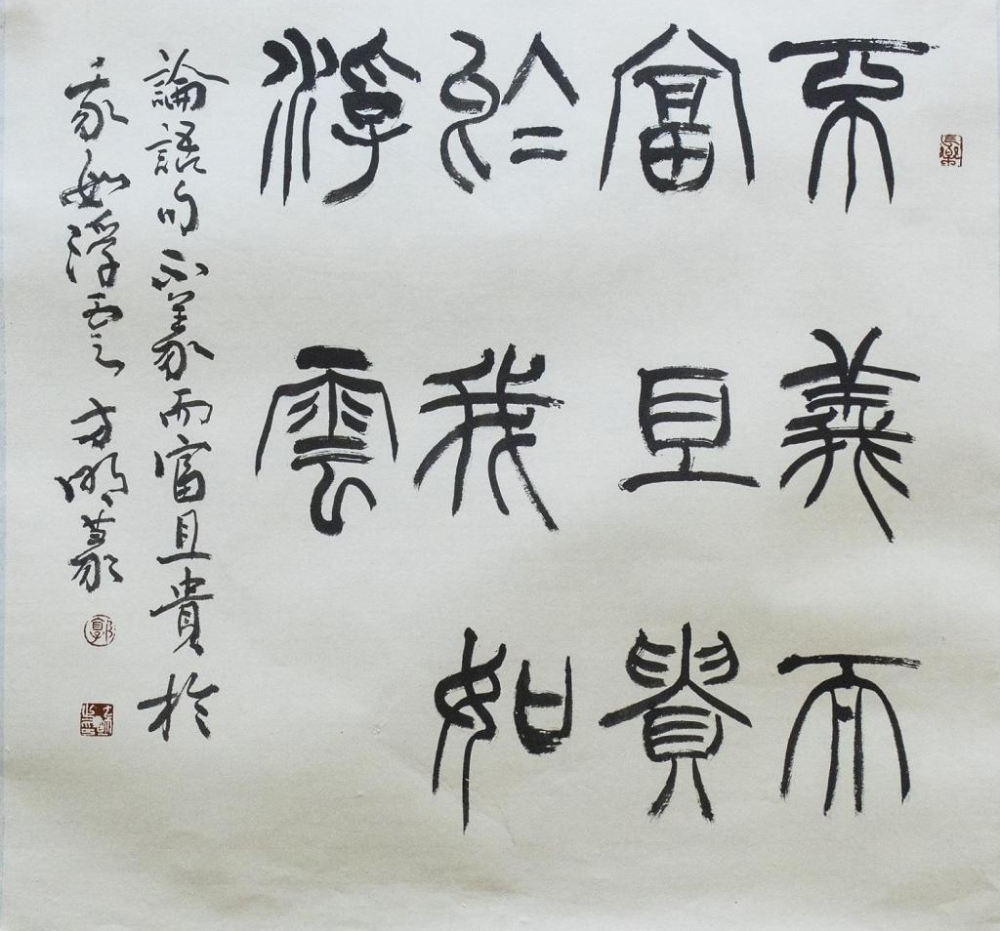 不義而
富且貴
於我如
浮雲
論語句不義而富且貴於
我如浮雲 方明篆